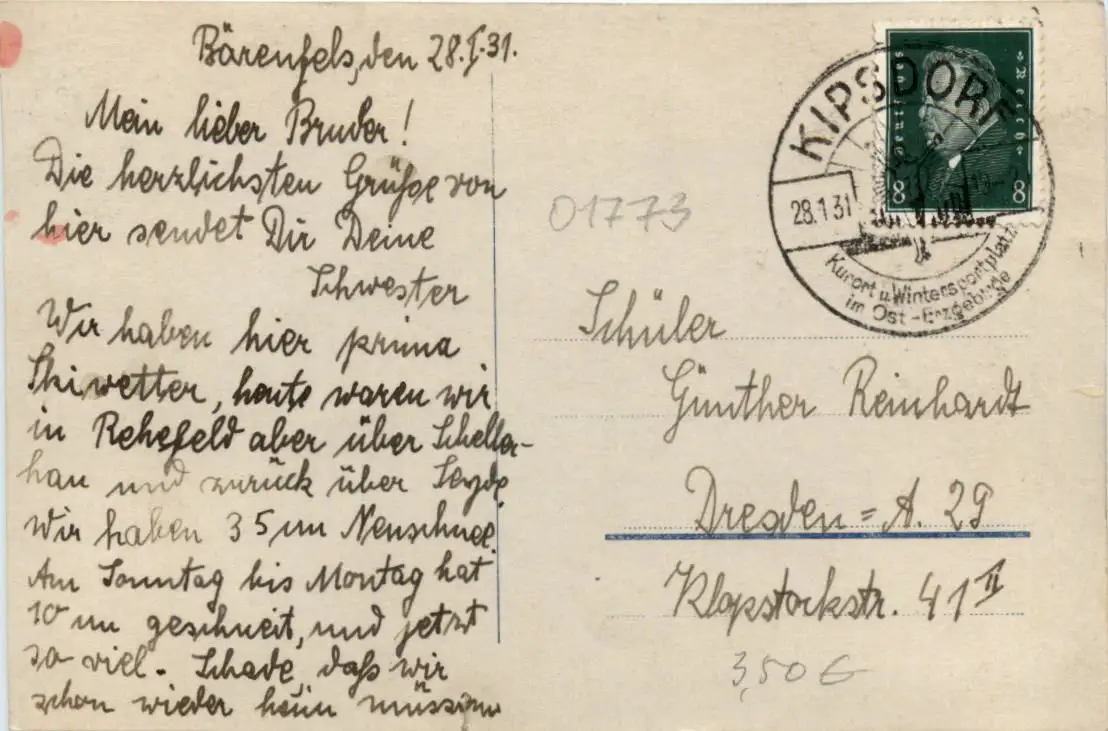 Bärenfels, den 28.I.31.
Mein lieber Bruder!
Die herzlichsten Grüße von
hier sendet Dir Deine
Schwester
Wir haben hier prima
Skiwetter, heute waren wir
in Rehefeld aber über Scheller-
hau und zurück über Seyde.
Wir haben 35 cm Neuschnee.
Am Sonntag bis Montag hat
10 cm geschneit, und jetzt
so viel. Schade, daß wir
schon wieder heim müssen
01773
KIPSDORF
28.1.31
Kurort u. Wintersportplatz
im Ost-Erzgebirge
Deutsches Reich
8 8
Schüler
Günther Reinhardt
Dresden=A. 29
Klopstockstr. 41 II
3,50 €